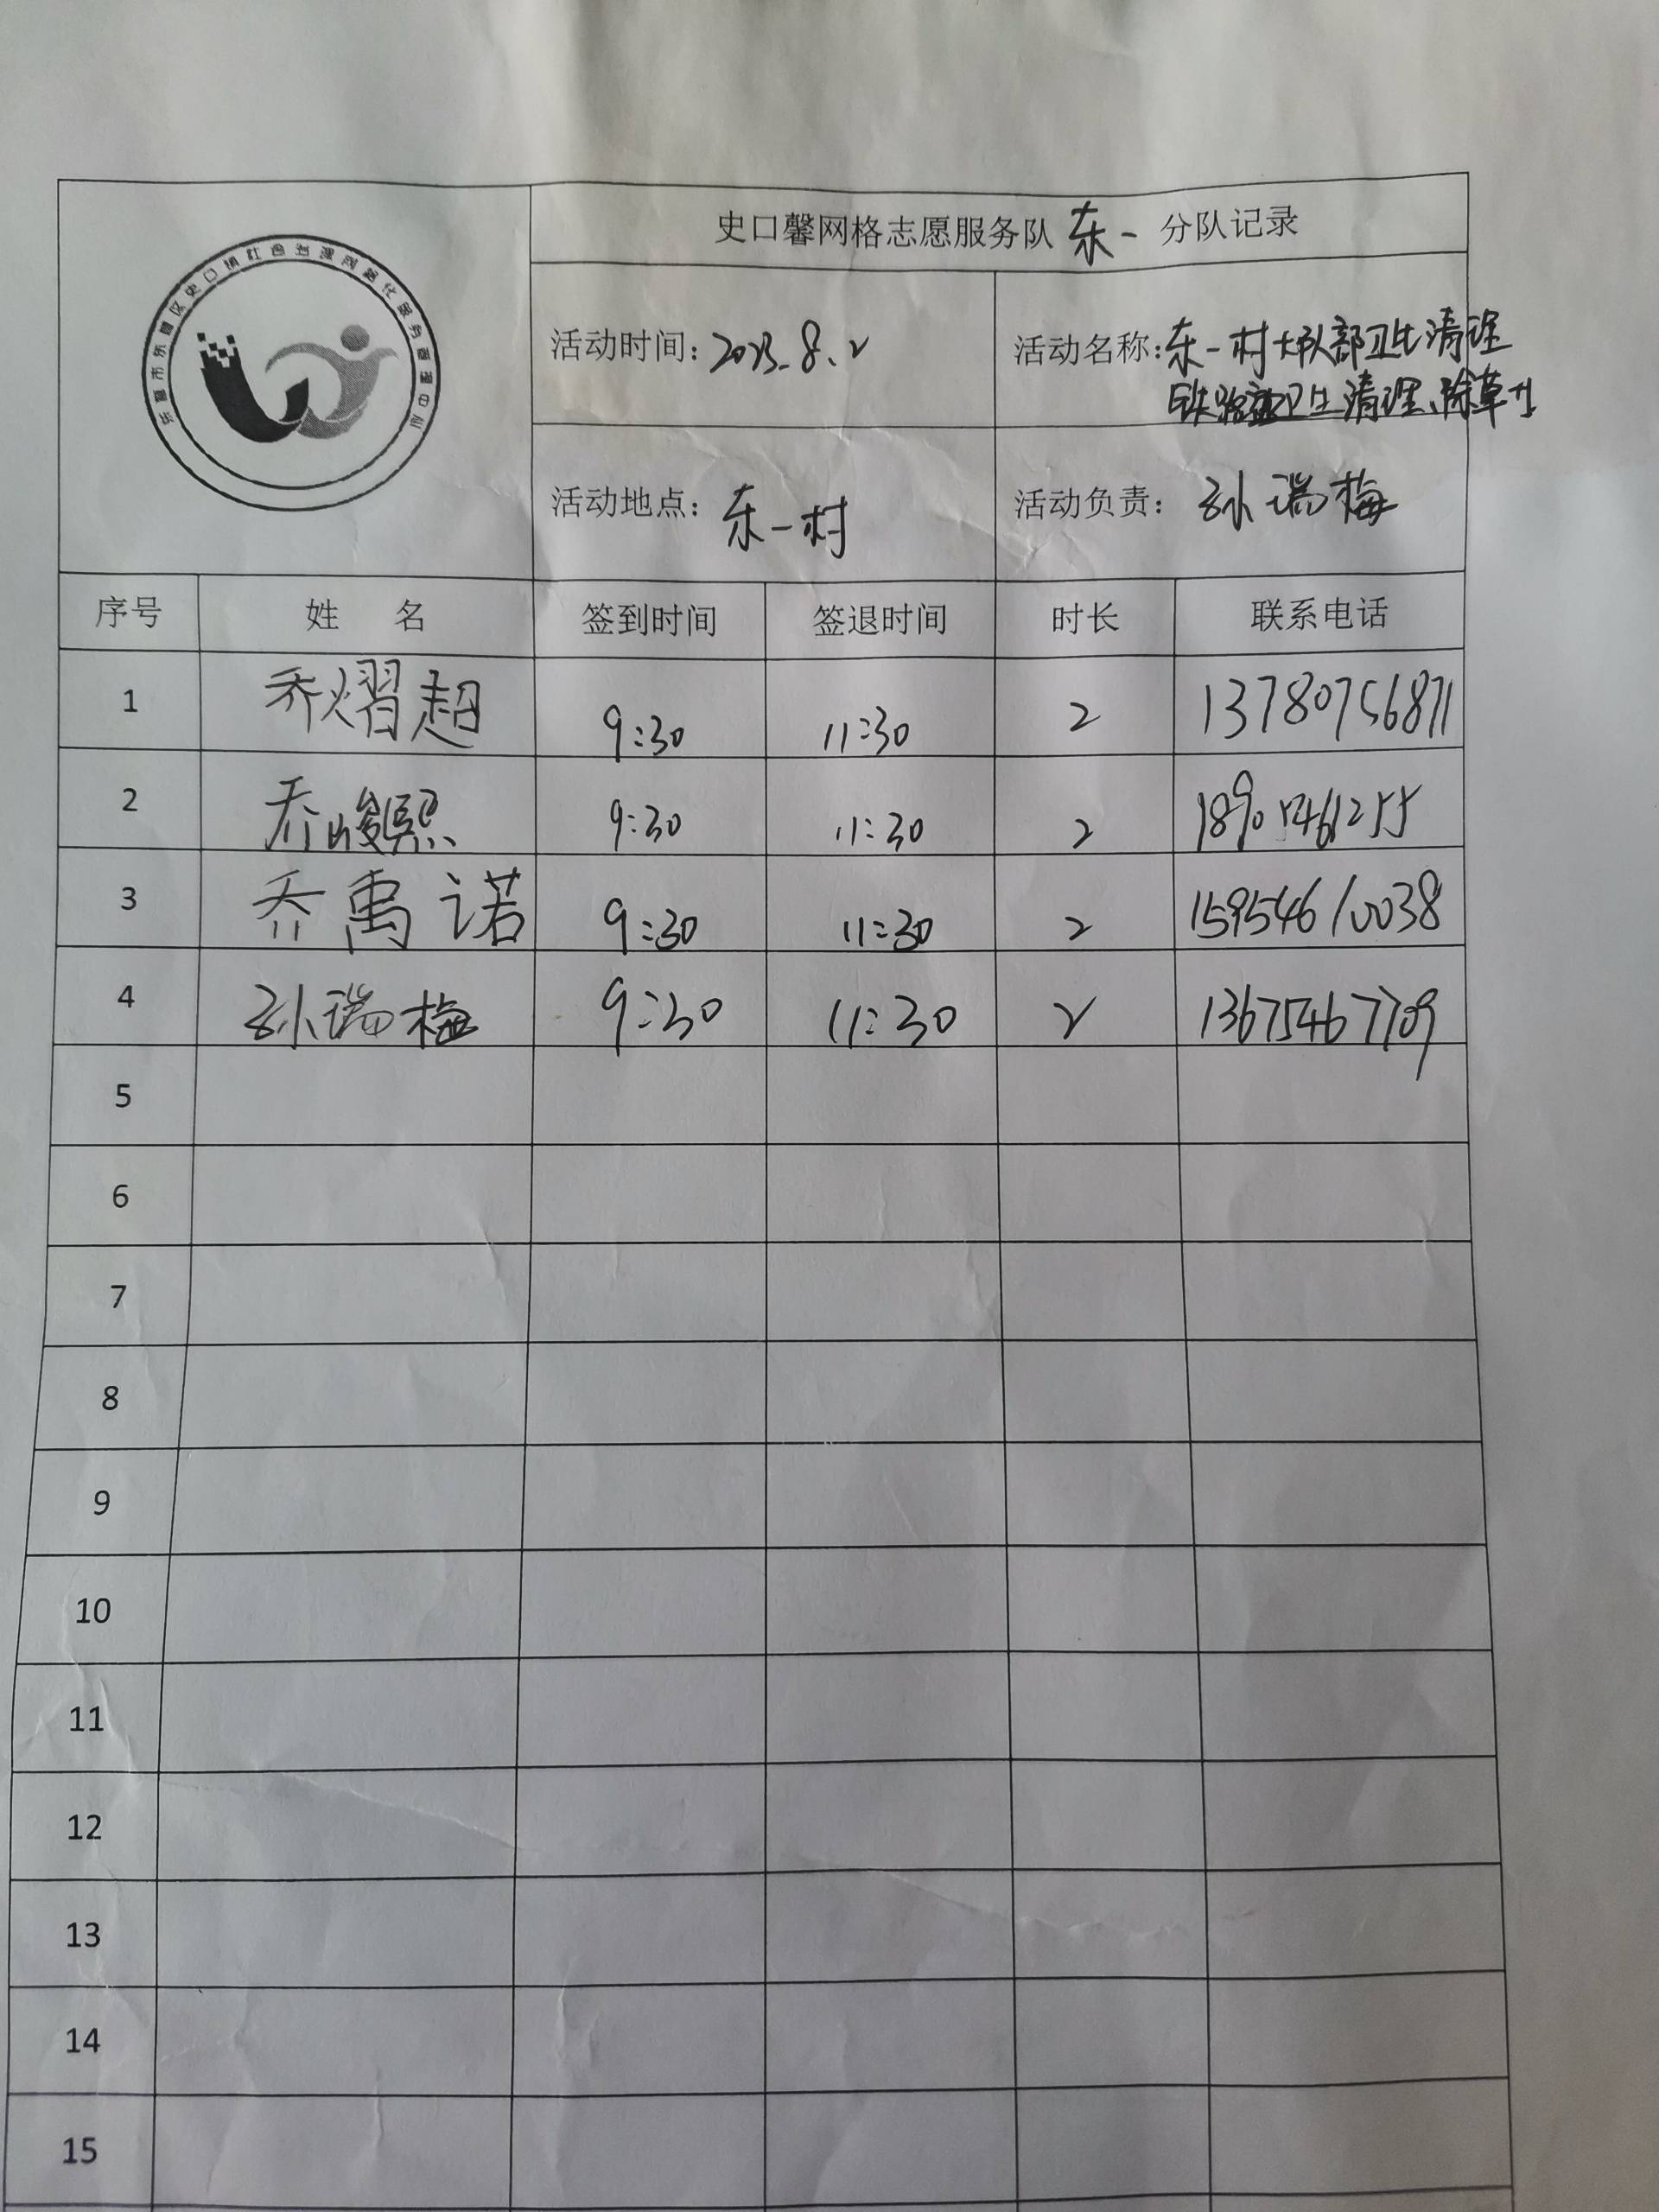 东营市东营区史口镇社会治理网格化服务管理中心
史口馨网格志愿服务队 东一 分队记录
活动时间：2023.8.2
活动名称：东一村大队部卫生清理
铁路边卫生清理、除草
活动地点：东一村
活动负责：孙瑞梅
序号 姓 名 签到时间 签退时间 时长 联系电话
1 乔熠超 9:30 11:30 2 13780756871
2 乔峻熙 9:30 11:30 2 18905461255
3 乔禹诺 9:30 11:30 2 15954610038
4 孙瑞梅 9:30 11:30 2 13675467709
5
6
7
8
9
10
11
12
13
14
15